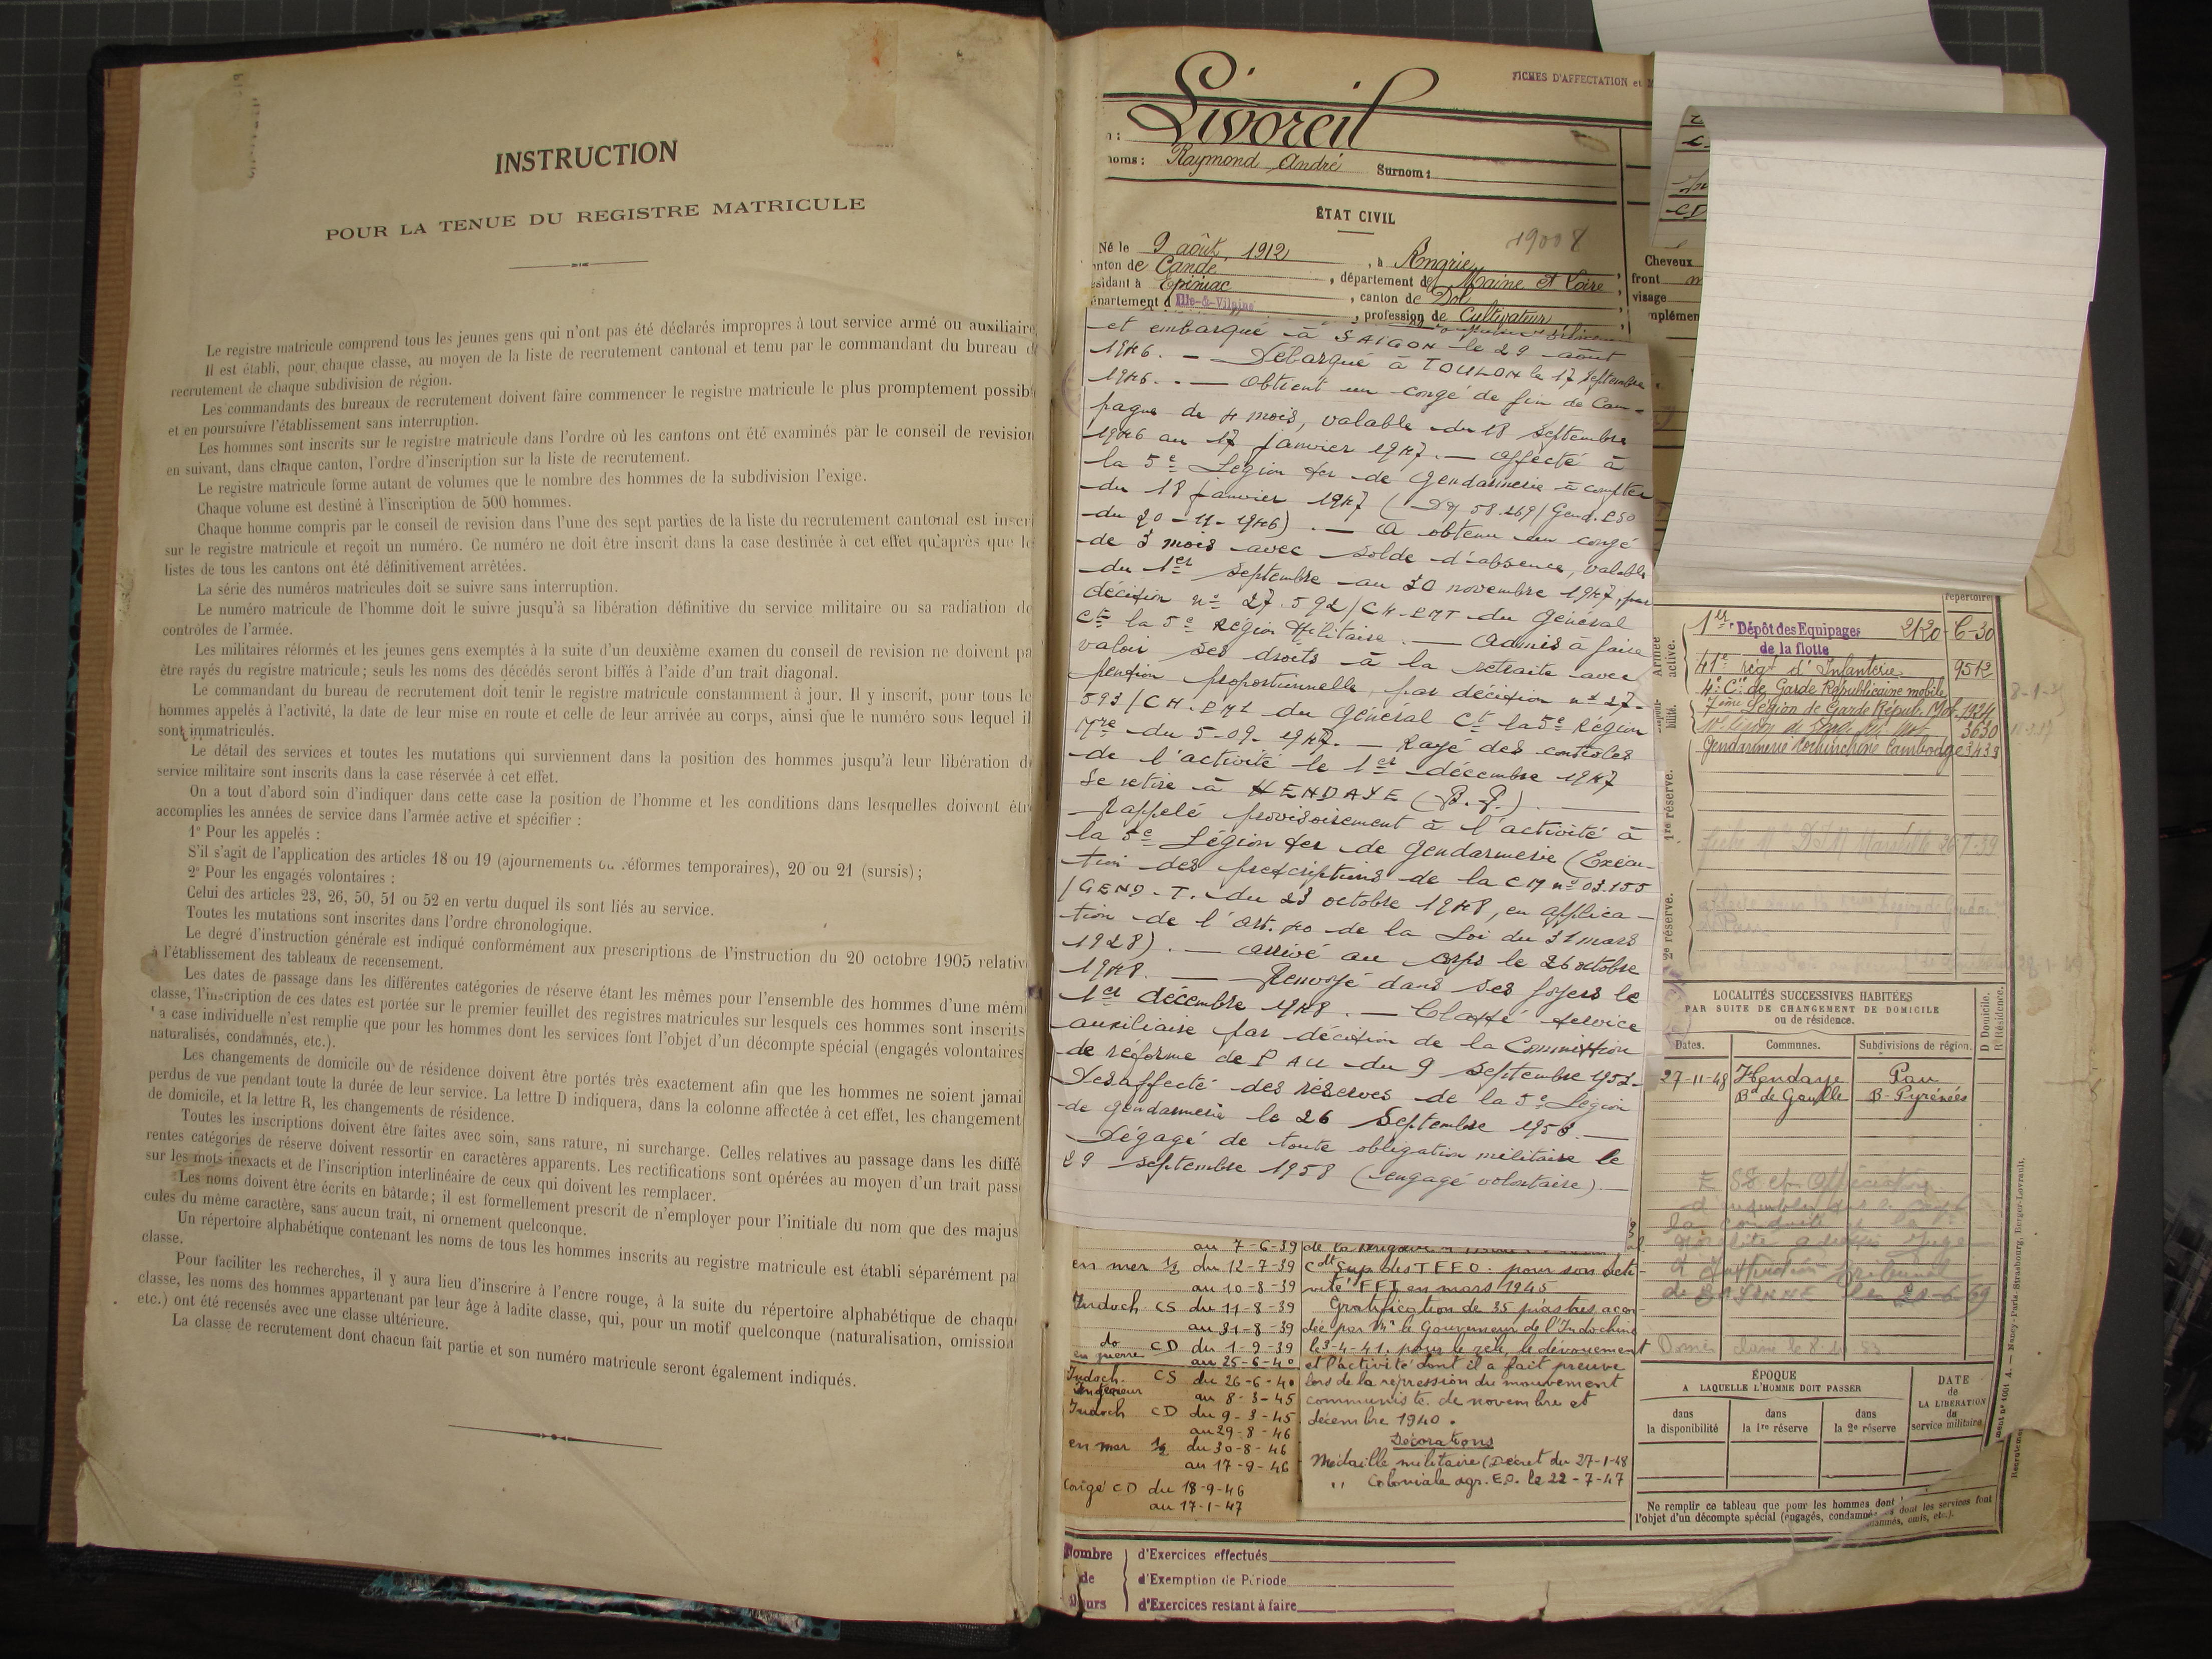 INSTRUCTION
POUR LA TENUE DU REGISTRE MATRICULE
Le registre matricule comprend tous les jeunes gens qui n'ont pas été déclarés impropres à tout service armé ou auxiliaire
Il est établi, pour chaque classe, au moyen de la liste de recrutement cantonal et tenu par le commandant du bureau d
recrutement de chaque subdivision de région.
Les commandants des bureaux de recrutement doivent faire commencer le registre matricule le plus promptement possib
et en poursuivre l'établissement sans interruption.
Les hommes sont inscrits sur le registre matricule dans l'ordre où les cantons ont été examinés par le conseil de revision
en suivant, dans chaque canton, l'ordre d'inscription sur la liste de recrutement.
Le registre matricule forme autant de volumes que le nombre des hommes de la subdivision l'exige.
Chaque volume est destiné à l'inscription de 500 hommes.
Chaque homme compris par le conseil de revision dans l'une des sept parties de la liste du recrutement cantonal est inscri
sur le registre matricule et reçoit un numéro. Ce numéro ne doit être inscrit dans la case destinée à cet effet qu'après que le
listes de tous les cantons ont été définitivement arrêtées.
La série des numéros matricules doit se suivre sans interruption.
Le numéro matricule de l'homme doit le suivre jusqu'à sa libération définitive du service militaire ou sa radiation de
contrôles de l'armée.
Les militaires réformés et les jeunes gens exemptés à la suite d'un deuxième examen du conseil de revision ne doivent pa
être rayés du registre matricule ; seuls les noms des décédés seront biffés à l'aide d'un trait diagonal.
Le commandant du bureau de recrutement doit tenir le registre matricule constamment à jour. Il y inscrit, pour tous le
hommes appelés à l'activité, la date de leur mise en route et celle de leur arrivée au corps, ainsi que le numéro sous lequel il
sont immatriculés.
Le détail des services et toutes les mutations qui surviennent dans la position des hommes jusqu'à leur libération d
service militaire sont inscrits dans la case réservée à cet effet.
On a tout d'abord soin d'indiquer dans cette case la position de l'homme et les conditions dans lesquelles doivent êtr
accomplies les années de service dans l'armée active et spécifier :
1° Pour les appelés :
S'il s'agit de l'application des articles 18 ou 19 (ajournements ou réformes temporaires), 20 ou 21 (sursis) ;
2° Pour les engagés volontaires :
Celui des articles 23, 26, 50, 51 ou 52 en vertu duquel ils sont liés au service.
Toutes les mutations sont inscrites dans l'ordre chronologique.
Le degré d'instruction générale est indiqué conformément aux prescriptions de l'instruction du 20 octobre 1905 relativ
à l'établissement des tableaux de recensement.
Les dates de passage dans les différentes catégories de réserve étant les mêmes pour l'ensemble des hommes d'une mêm
classe, l'inscription de ces dates est portée sur le premier feuillet des registres matricules sur lesquels ces hommes sont inscrits
a case individuelle n'est remplie que pour les hommes dont les services font l'objet d'un décompte spécial (engagés volontaires
naturalisés, condamnés, etc.).
Les changements de domicile ou de résidence doivent être portés très exactement afin que les hommes ne soient jamai
perdus de vue pendant toute la durée de leur service. La lettre D indiquera, dans la colonne affectée à cet effet, les changement
de domicile, et la lettre R, les changements de résidence.
Toutes les inscriptions doivent être faites avec soin, sans rature, ni surcharge. Celles relatives au passage dans les diffé
rentes catégories de réserve doivent ressortir en caractères apparents. Les rectifications sont opérées au moyen d'un trait passé
sur les mots inexacts et de l'inscription interlinéaire de ceux qui doivent les remplacer.
Les noms doivent être écrits en bâtarde ; il est formellement prescrit de n'employer pour l'initiale du nom que des majus
cules du même caractère, sans aucun trait, ni ornement quelconque.
Un répertoire alphabétique contenant les noms de tous les hommes inscrits au registre matricule est établi séparément pa
classe.
Pour faciliter les recherches, il y aura lieu d'inscrire à l'encre rouge, à la suite du répertoire alphabétique de chaqu
classe, les noms des hommes appartenant par leur âge à ladite classe, qui, pour un motif quelconque (naturalisation, omission
etc.) ont été recensés avec une classe ultérieure.
La classe de recrutement dont chacun fait partie et son numéro matricule seront également indiqués.
FICHES D'AFFECTATION et
Livoreil
noms : Raymond André Surnom :
ÉTAT CIVIL
Né le 9 août 1912, à Angrie,
anton de Candé, département d Maine et Loire,
ésidant à Epiniac, canton de Dol
épartement d Ille-&-Vilaine, profession de Cultivateur
et embarqué à SAIGON le 29 août
1946. — Débarqué à TOULON le 17 Septembre
1946. — Obtient un congé de fin de Cam-
pagne de 4 mois, valable du 18 Septembre
1946 au 17 janvier 1947. — Affecté à
la 5e Légion ter de Gendarmerie à compter
du 18 janvier 1947 ( 58.269/Gend.
du 20-11-1946). — A obtenu un congé
de 3 mois avec solde d'absence, valable
du 1er Septembre au 30 novembre 1947, par
décision n° 27.592/CH-EMT du Général
Ct la 5e Région Militaire. — Admis à faire
valoir ses droits à la retraite avec
pension proportionnelle, par décision n° 27-
593/CH. du Général Ct la 5e Région
Mre du 5-09-1947. — Rayé des contrôles
de l'activité le 1er décembre 1947
Se retire à HENDAYE (B.P.). —
Rappelé provisoirement à l'activité à
la 5e Légion ter de Gendarmerie (Exécu-
tion des prescriptions de la CM n° 03.155
/GEND-T. du 23 octobre 1948, en applica-
tion de l'Art. 40 de la Loi du 31 mars
1928). — Arrivé au corps le 26 octobre
1948. — Renvoyé dans ses foyers le
1er décembre 1948. — Classé service
auxiliaire par décision de la Commission
de réforme de PAU du 9 Septembre 1952-
Désaffecté des réserves de la 5e Légion
de gendarmerie le 26 Septembre 1958. —
Dégagé de toute obligation militaire le
29 septembre 1958 (engagé volontaire). —
au 7-6-39
en mer ½ du 12-7-39
au 10-8-39
Indoch CS du 11-8-39
au 31-8-39
do en guerre CD du 1-9-39
au 25-6-40
Indoch. CS du 26-6-40
au 8-3-45
Indoch CD du 9-3-45
au 29-8-46
en mer ½ du 30-8-46
au 17-9-46
Congé CD du 18-9-46
au 17-1-47
Cdt Sup des TFEO. pour son acti-
vité FFI en mars 1945
Gratification de 35 piastres, accor-
dée par Mr le Gouverneur de l'Indochine
le 3-4-41. pour le zèle, le dévouement
et l'activité dont il a fait preuve
lors de la répression du mouvement
communiste de novembre et
décembre 1940.
Décorations
Médaille militaire (Décret du 27-1-48
,, Coloniale agr. E.O. le 22-7-47
Nombre de Jours
d'Exercices effectués
d'Exemption de Période
d'Exercices restant à faire
Cheveux
front
visage
répertoire
Armée active.
1er Dépôt des Equipages de la flotte 2120 C-30
41e régt d'Infanterie 9512
4e Cie de Garde Républicaine mobile
7ème Légion de Garde Républ. Mob. 1924
3630
Gendarmerie Cochinchine Cambodge 3433
1re réserve.
2e réserve.
LOCALITÉS SUCCESSIVES HABITÉES
PAR SUITE DE CHANGEMENT DE DOMICILE
ou de résidence.
D Domicile.
R Résidence.
Dates. Communes. Subdivisions de région.
27-11-48 Hendaye Pau
Bd de Gaulle B-Pyrénées
ÉPOQUE
A LAQUELLE L'HOMME DOIT PASSER
dans la disponibilité
dans la 1re réserve
dans la 2e réserve
DATE de LA LIBÉRATION du service militaire
Ne remplir ce tableau que pour les hommes dont les services font
l'objet d'un décompte spécial (engagés, condamnés, omis, etc.).
Nancy-Paris-Strasbourg, Berger-Levrault.